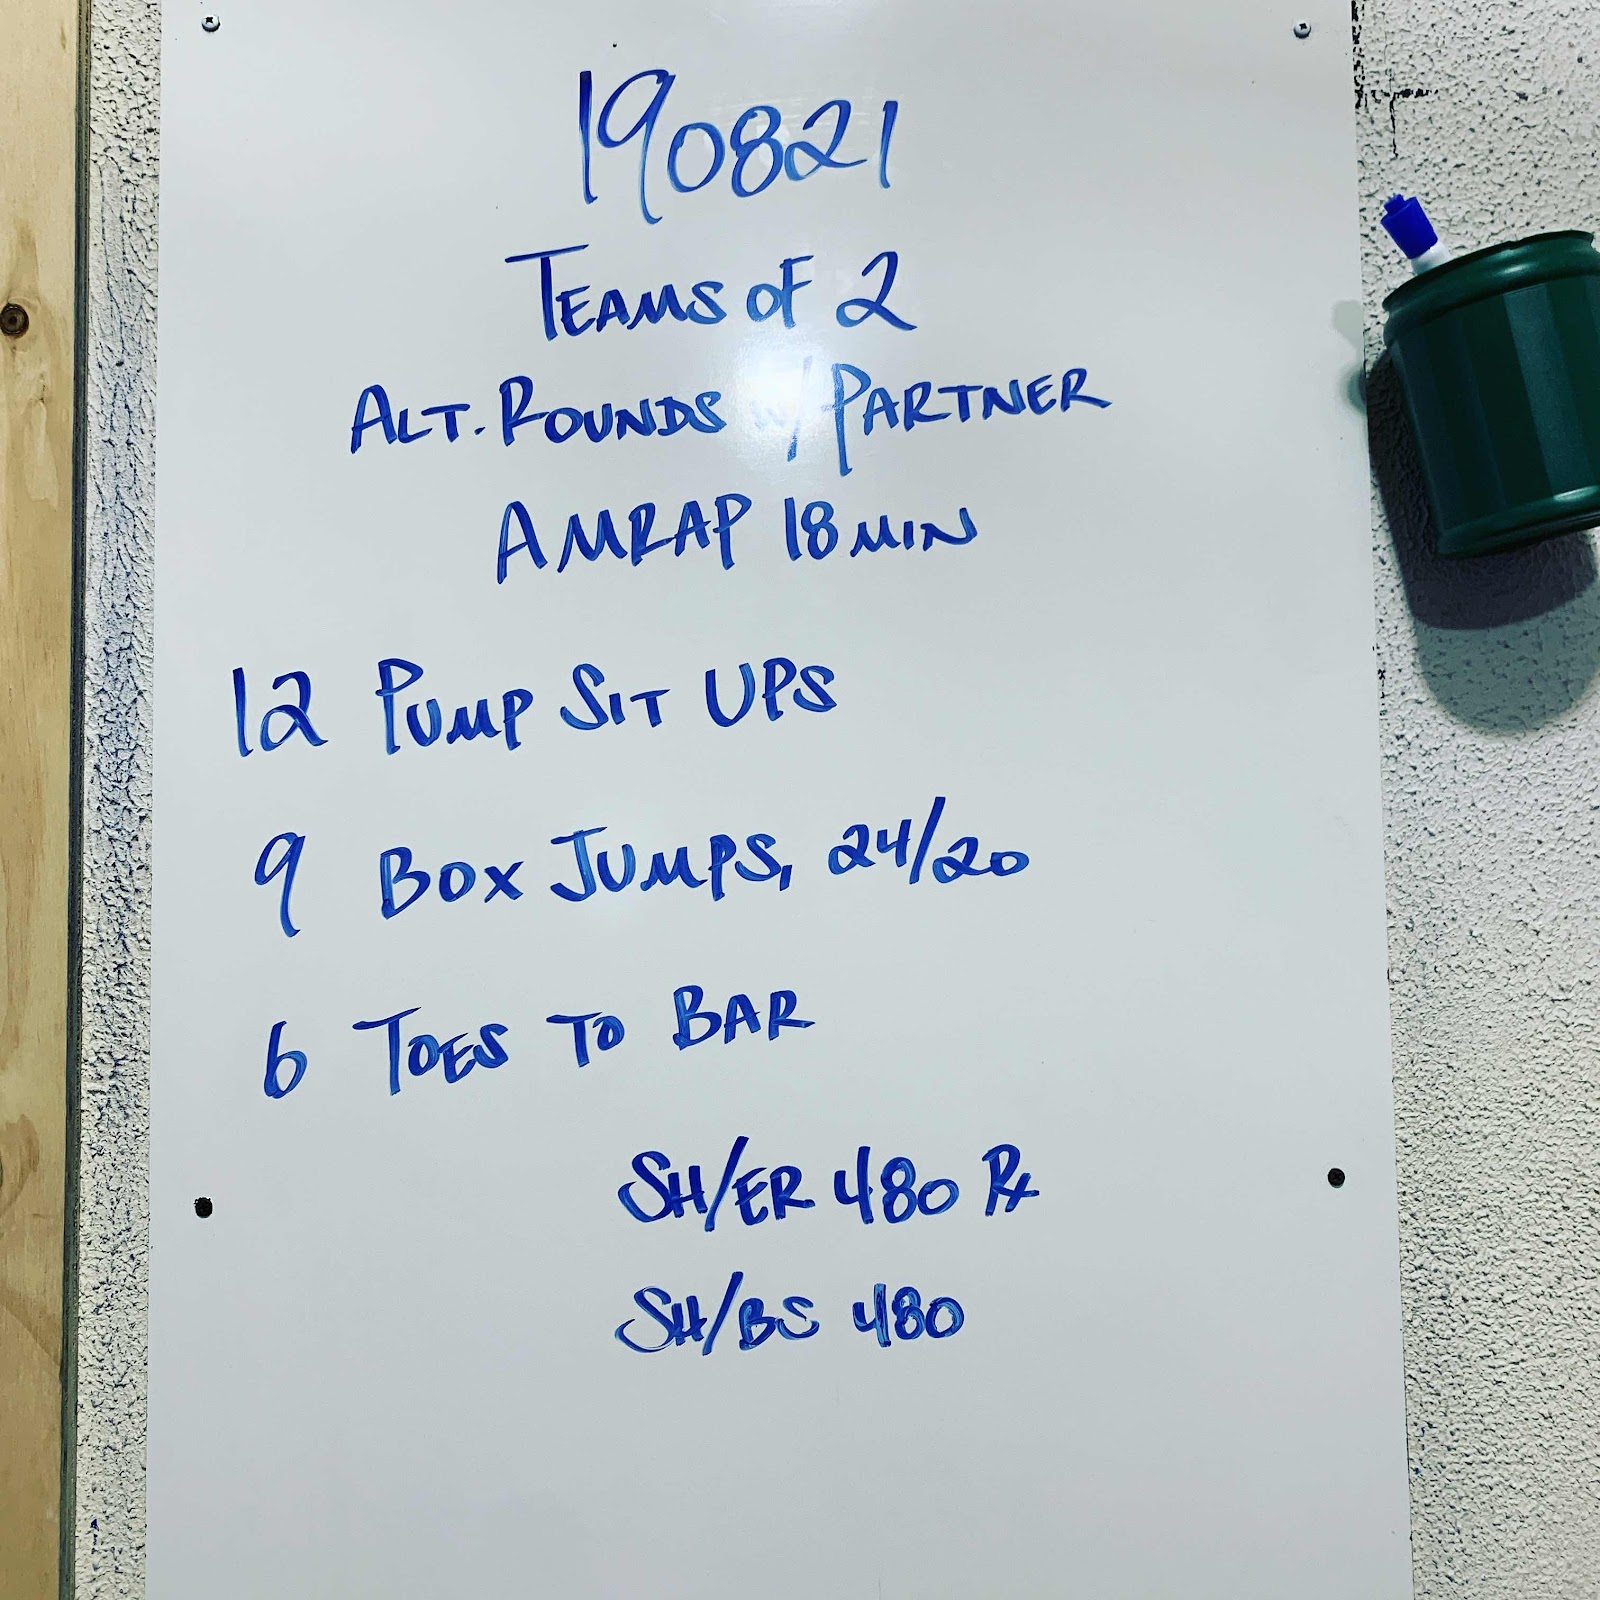 190821
TEAMS OF 2
ALT. ROUNDS W/ PARTNER
AMRAP 18 MIN
12 PUMP SIT UPS
9 BOX JUMPS, 24/20
6 TOES TO BAR
SH/ER 480 Rx
SH/BS 480